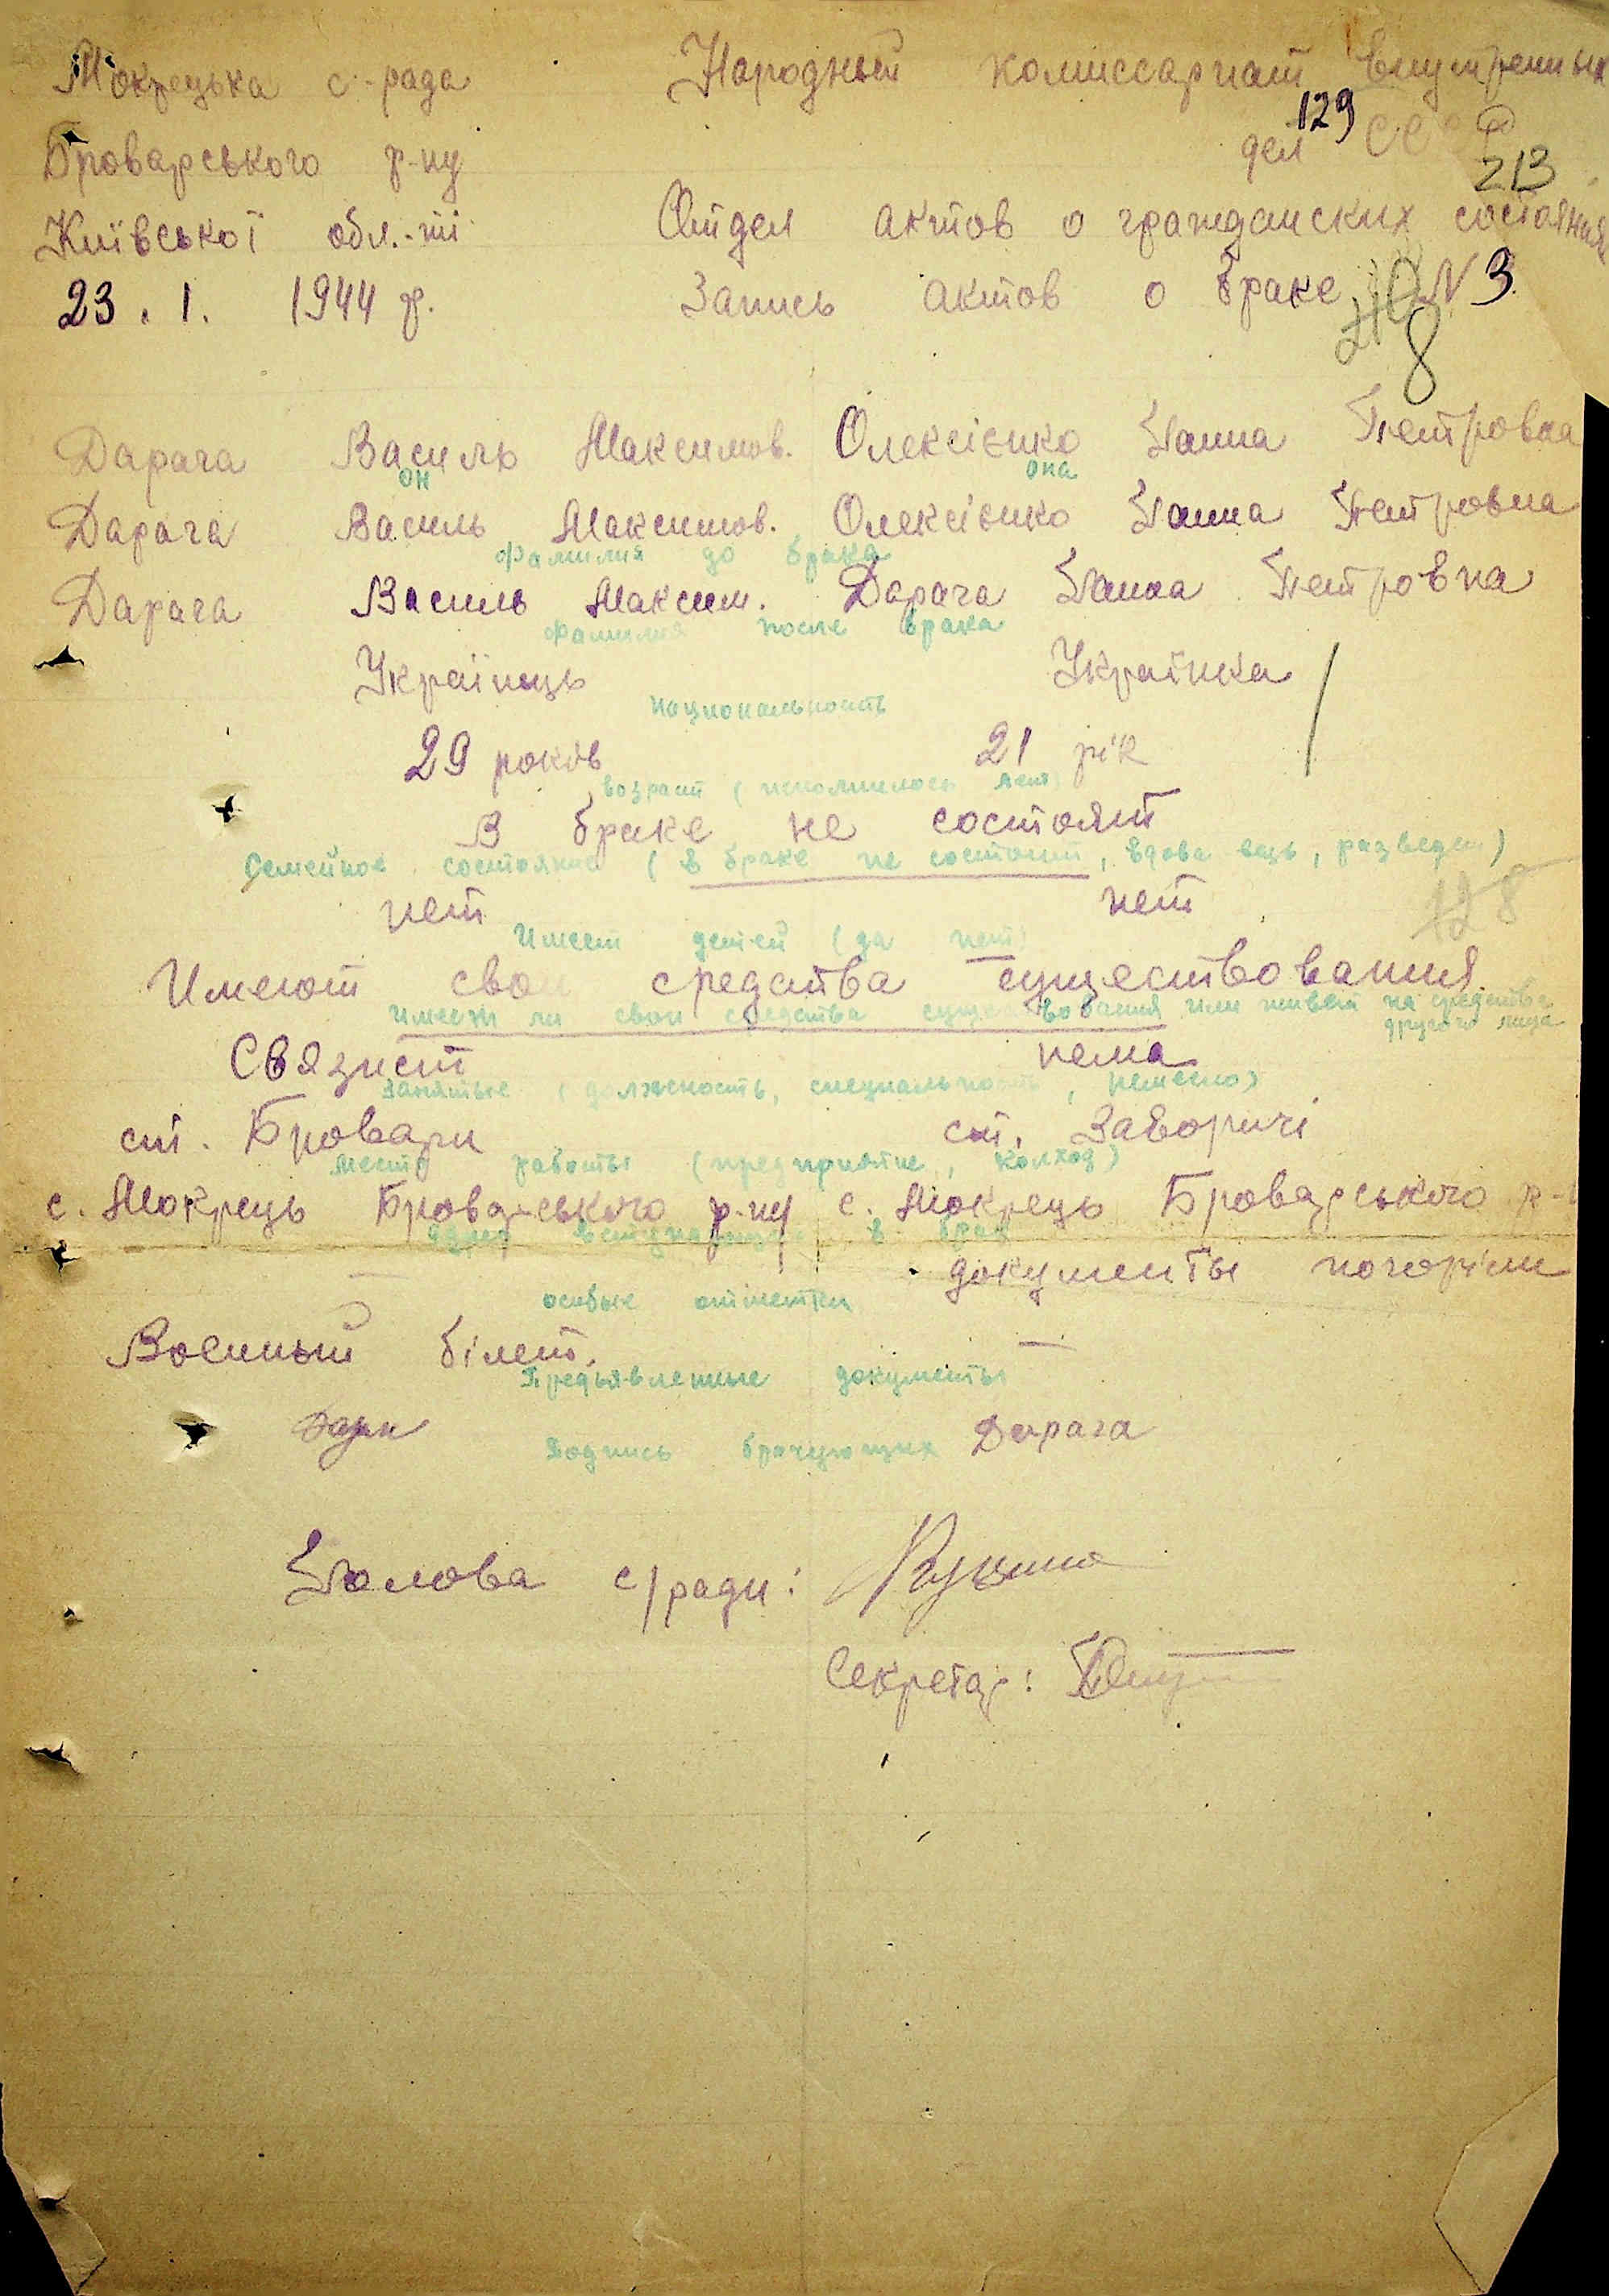 Мокрецька с-рада Народный комиссариат внутренных
дел 129 СССР
Броварського р-ну 213
Київської обл.-ті Отдел актов о гражданских состояния
23. 1. 1944 р. Запись актов о браке N 3.
8
Дарага Василь Максимов. Олексієнко Ганна Петровна
он она
Дарага Василь Максимов. Олексієнко Ганна Петровна
Фамилия до брака
Дарага Василь Максим. Дарага Ганна Петровна
Фамилия после брака
Українець Українка
Национальность
29 років 21 рік
возраст (исполнилось лет)
В браке не состоят
Семейное состояние (в браке не состоит, вдова вець, разведен)
нет нет
128
Имеет детей (да нет)
Имеют свои средства существования
Имеет ли свои средства существования или живет на средства
другого лица
Связист нема
Занятые (должность, специальность, ремесло)
ст. Бровари ст. Заворичі
место работы (предприятие, колхоз)
с. Мокрець Броварського р-ну с. Мокрець Броварського р-
Адрес вступающих в брак
документы погоріли
особые отметки
Военный білет. —
Предъявленные документы
Дарага
Подпись брачующих
Голова с/ради:
Секретар: